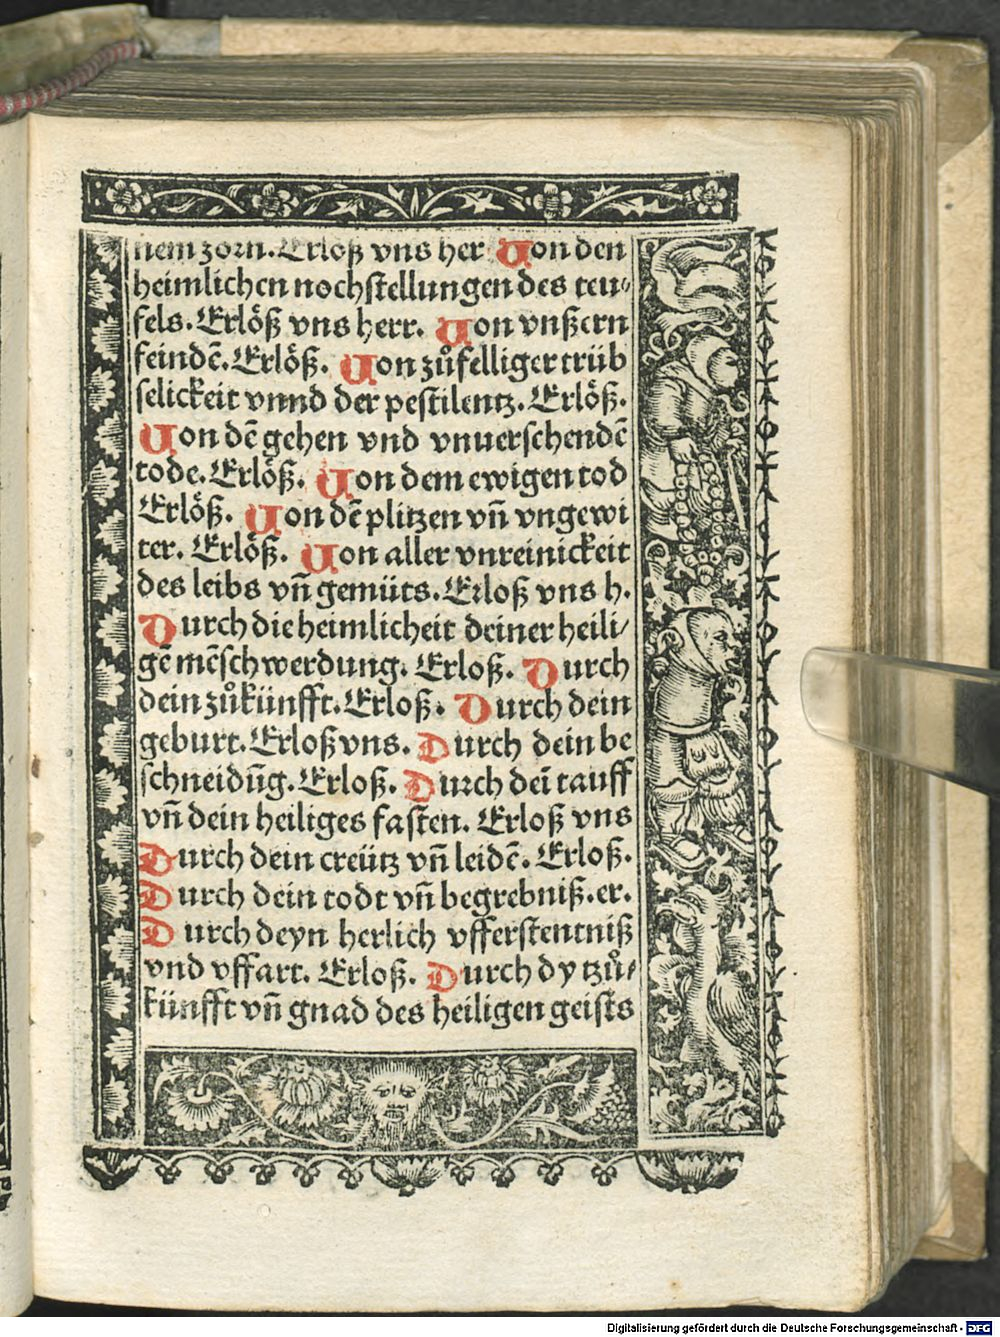 nem zorn. Erloß vns her Von den
heimlichen nochstellungen des teu⸗
fels. Erlöß vns herr. Von vnßern
feindē. Erlöß. Von zůfelliger trüb
selickeit vnnd der pestilentz. Erlöß.
Von dē gehen vnd vnuersehendē
tode. Erlöß. Von dem ewigen tod
Erlöß. Von dē plitzen vn̄ vngewi
ter. Erlöß. Von aller vnreinickeit
des leibs vn̄ gemüts. Erloß vns h.
Durch die heimlicheit deiner heili/
gē mēschwerdung. Erloß. Durch
dein zůkünfft. Erloß. Durch dein
geburt. Erloß vns. Durch dein be
schneidūg. Erloß. Durch deī tauff
vn̄ dein heiliges fasten. Erloß vns
Durch dein creütz vn̄ leidē. Erloß.
Durch dein todt vn̄ begrebniß. er.
Durch deyn herlich vfferstentniß
vnd vffart. Erloß. Durch dy tzů⸗
künfft vn̄ gnad des heiligen geists
Digitalisierung gefördert durch die Deutsche Forschungsgemeinschaft - DFG